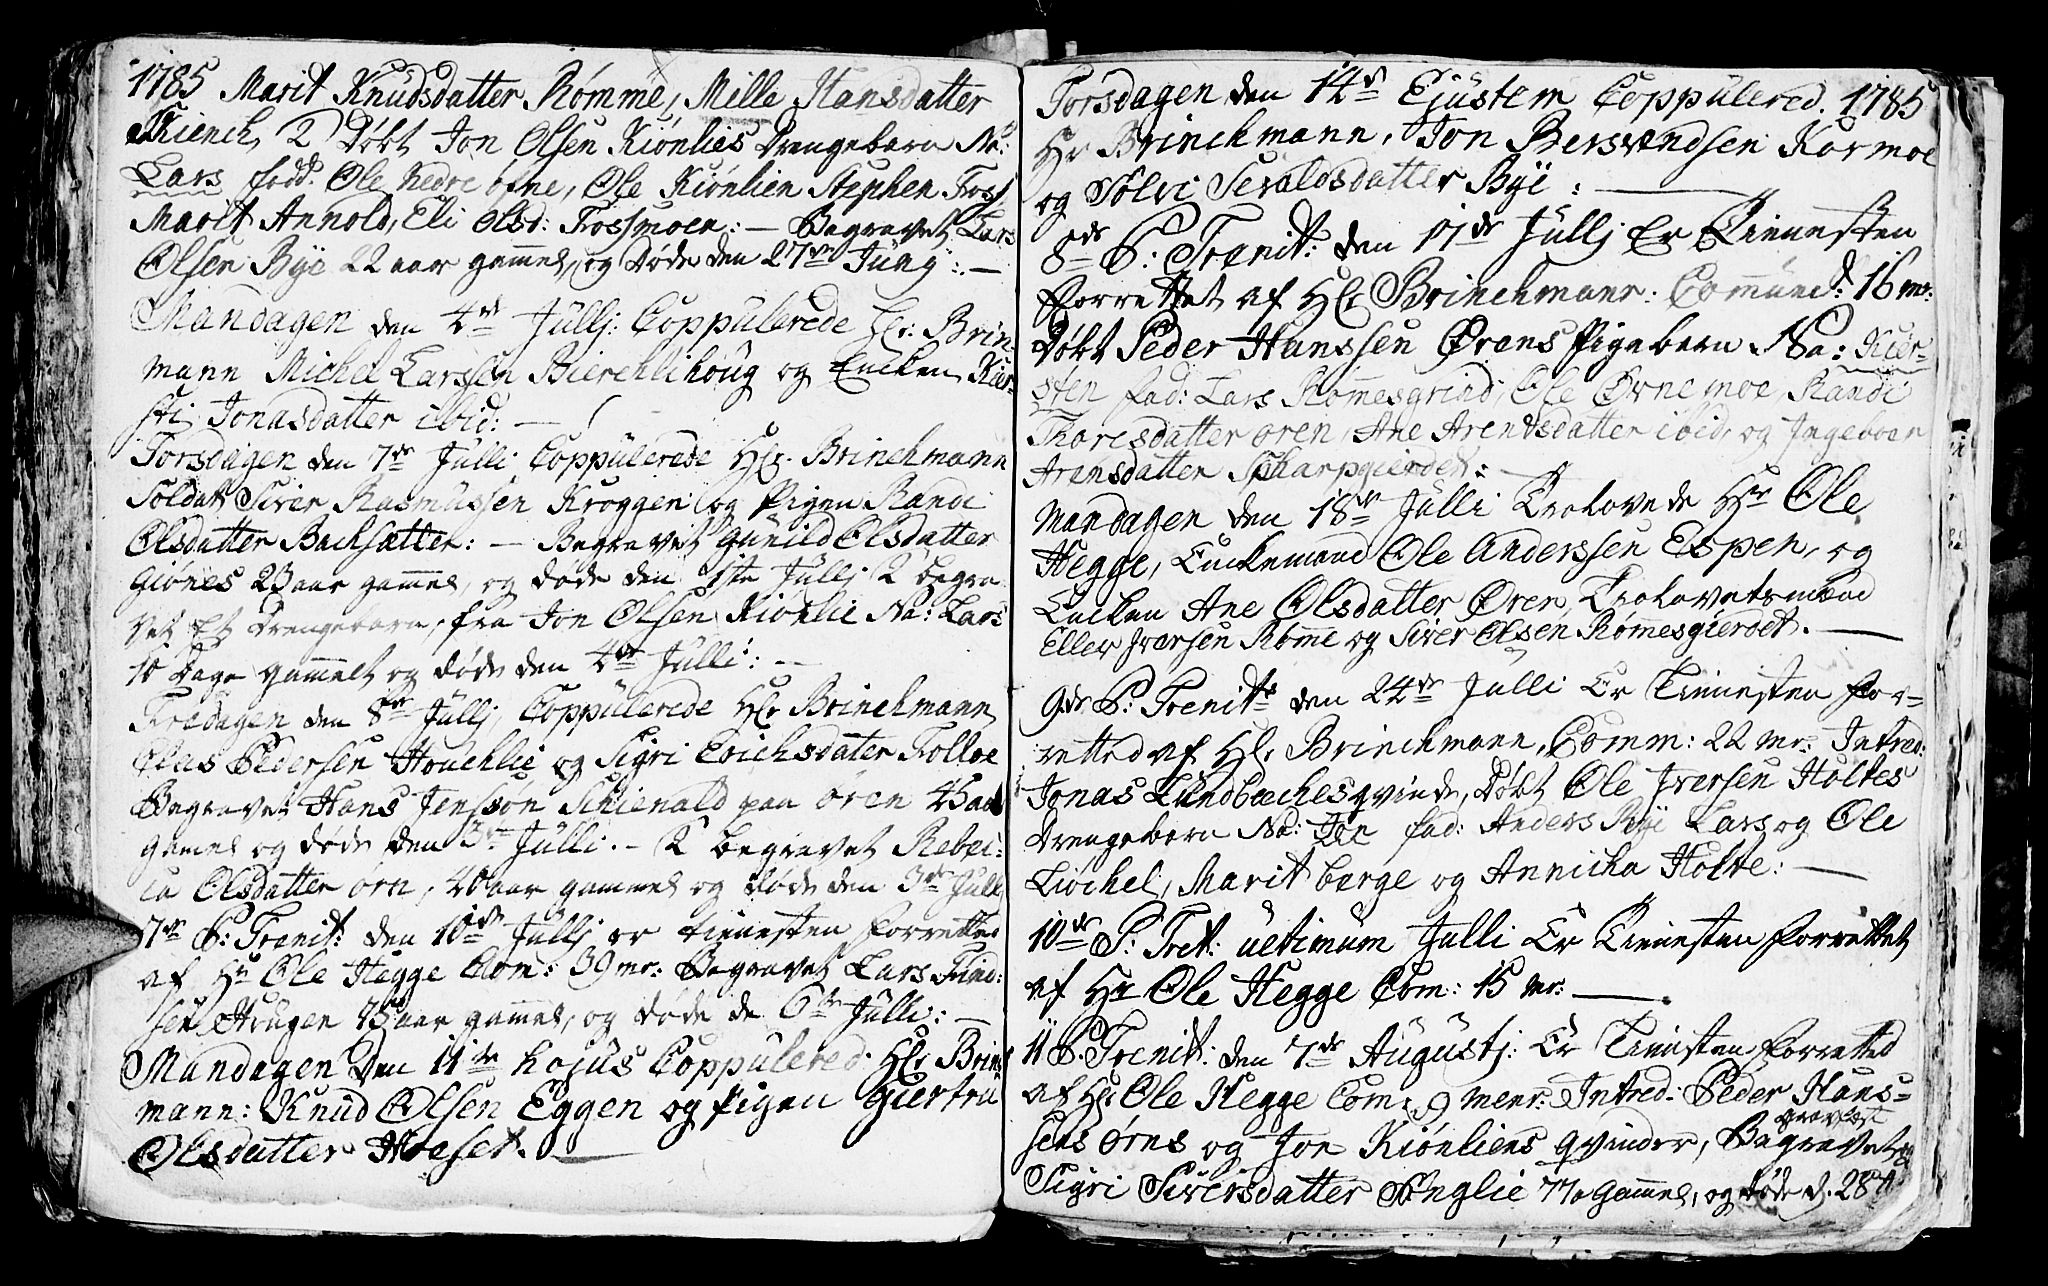 1785 Marit Knudsdatter Rømme, Mille Hansdatter
Skienck, 2 døbt Jon Olsen Kiønlies Drengebarn Na:
Lars fadd. Ole Nedre øfne, Ole Kiønlien Stephen Foss
Marit Annold, Eli Olsd: Fossmoen: — Begravet Lars
Olsen Bye 22 aar gammel, og døde den 27de Junij: —
Mandagen den 4de Jullj: Coppulerede Hr: Brin-
mann Michel Larssen Bierchlihoug og Encken Kier-
sti Jonasdatter ibid: —
Torsdagen den 7de Julli Coppulerede Hr. Brinchmann
Soldat Siver Rasmussen Kroggen og Pigen Randi
Olsdatter Bachsætter: — Begravet Gunild Olsdatter
Giønes 23 aar gammel, og døde den 1ste Jullj 2 begra
vet Et Drengebarn, fra Jon Olsen Kiønlie Na: Lars
10 Dage gammelt og døde den 4de Julli: —
Fredagen den 8de Jullj, Coppulerede Hr Brinchmann
Claus Pedersen Houchlie og Sigri Erichsdatter Folloe
Begravet Hans Jenssøn Schienald paa ören 45 aar
gamel og døde den 3de Julli. — 2 begravet Rebec-
ca Olsdatter örn, 40 aar gammel og døde den 3de Julli
7de S: Trenit: den 10de Jullj er tienesten forrettet
af Hr Ole Hegge Com: 39 mr: Begravet Lars Trind:
sen Hougen 75 aar gammel, og døde de 6de Julli: —
Mandagen den 11te hujus Coppulered: Hr Brinch
mann: Knud Olsen Eggen og Pigen Giertru
Olsdatter Hoeset. —
Torsdagen den 14de Ejustem Coppulered. 1785
Hr Brinchmann, Jon Bersvendsen Kormoe
og Sølvi Sevaldsdatter Bye: —
8de S: Trenit: den 17de Jullj Er Tienesten
forrettet af Hr Brinchmann: Commund: 16 mr:
døbt Peder Hanssen Ørens Pigebarn Na: Kier-
sten fad: Lars Rømmesgrind, Ole Øvnemoe Randi
Thoresdatter ören, Ane Arentsdatter ibid, og Ingeboer
Arensdatter Skarpgierdet: —
Mandagen den 18de Julli Trolovede Hr Ole
Hegge, Enckemand Ole Anderssen Espen, og
Encken Ane Olsdatter Øren, Trolovetsmænd
Eller Iversen Rømme og Siver Olsen Rømmesgierdet. —
9de S: Trenit: den 24de Julli Er Tienesten for-
retted af Hr Brinchmann, Comm: 22 mr: Intred:
Jonas Lundbaches qvinde, døbt Ole Iversen Holtes
Drengebarn Na: Jon fad: Anders Bye Lars og Ole
Liøchel, Marit berge og Annicha Holte: —
10de S: Tret: ultimum Julli Er Tienesten forrettet
af Hr Ole Hegge Com: 15 mr: —
11 S. Trenit: den 7de Augustj: Er Tienisten forretted
af Hr Ole Hegge Com: 9 menr: Intred: Peder Hans-
sens örns og Jon Kiønliens qvinder, Begravet og
Sigri Siversdatter Englie 77 a gammel, og døde d. 28de